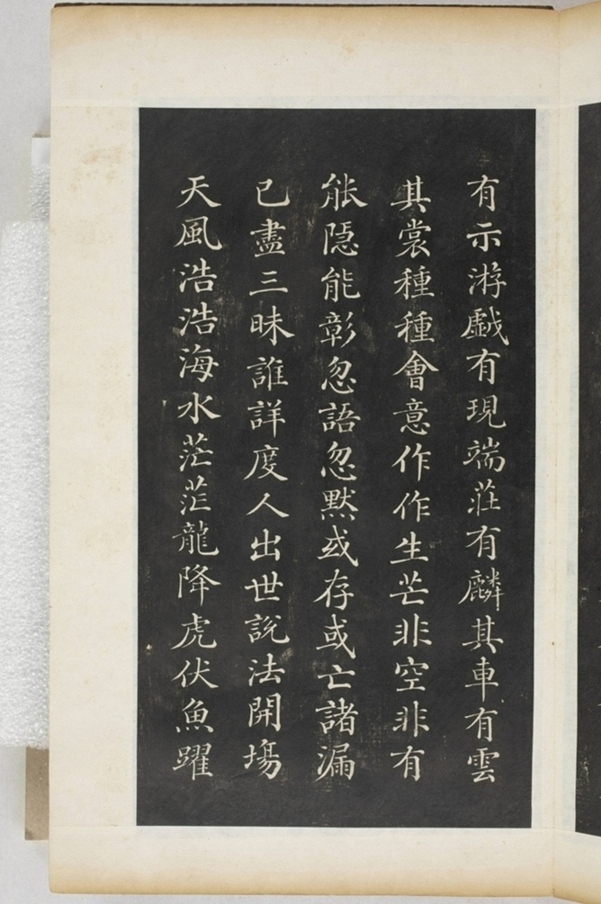 有示游戱有現端莊有麟其車有雲
其裳種種會意作作生芒非空非有
能隱能彰忽語忽默或存或亡諸漏
已盡三昧誰詳度人出世説法開塲
天風浩浩海水茫茫龍降虎伏魚躍